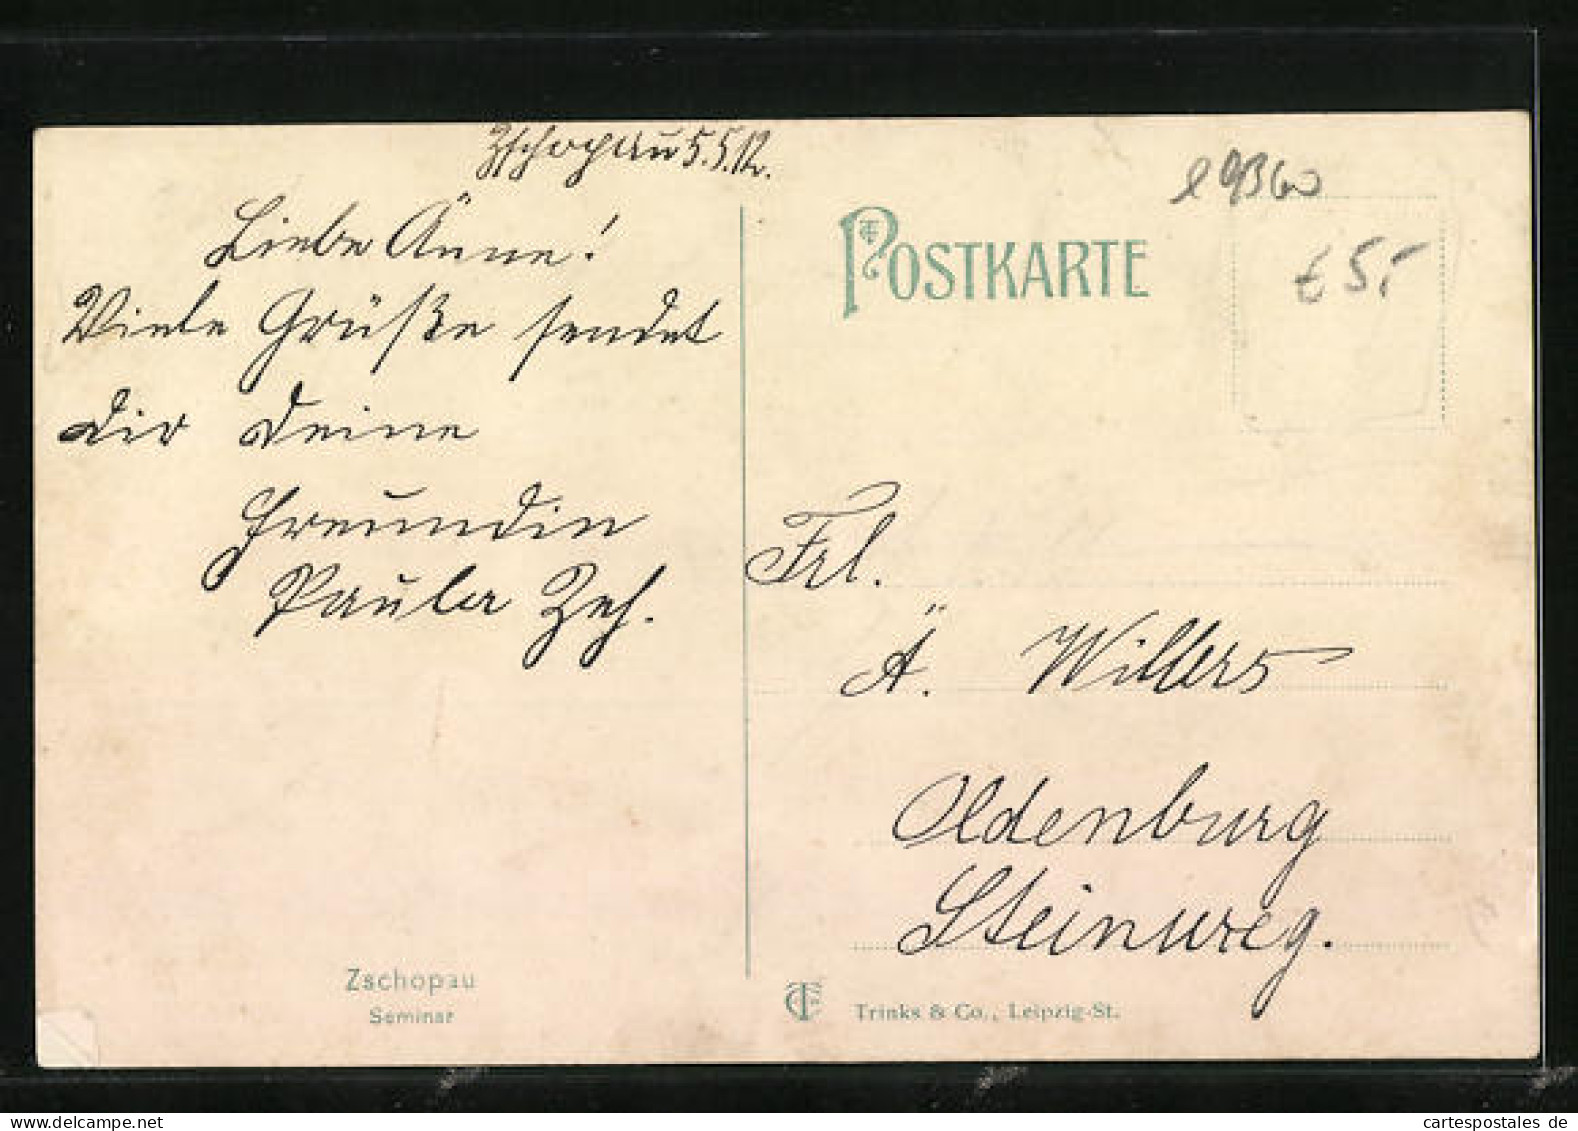 Zschopau 5.5.12.
Liebe Änne!
Viele Grüße sendet
dir deine
Freundin
Paula Zeh.
POSTKARTE
€ 5,-
Frl.
Ä. Willers
Oldenburg
Steinweg.
Zschopau
Seminar
Trinks & Co., Leipzig-St.
cartespostales de